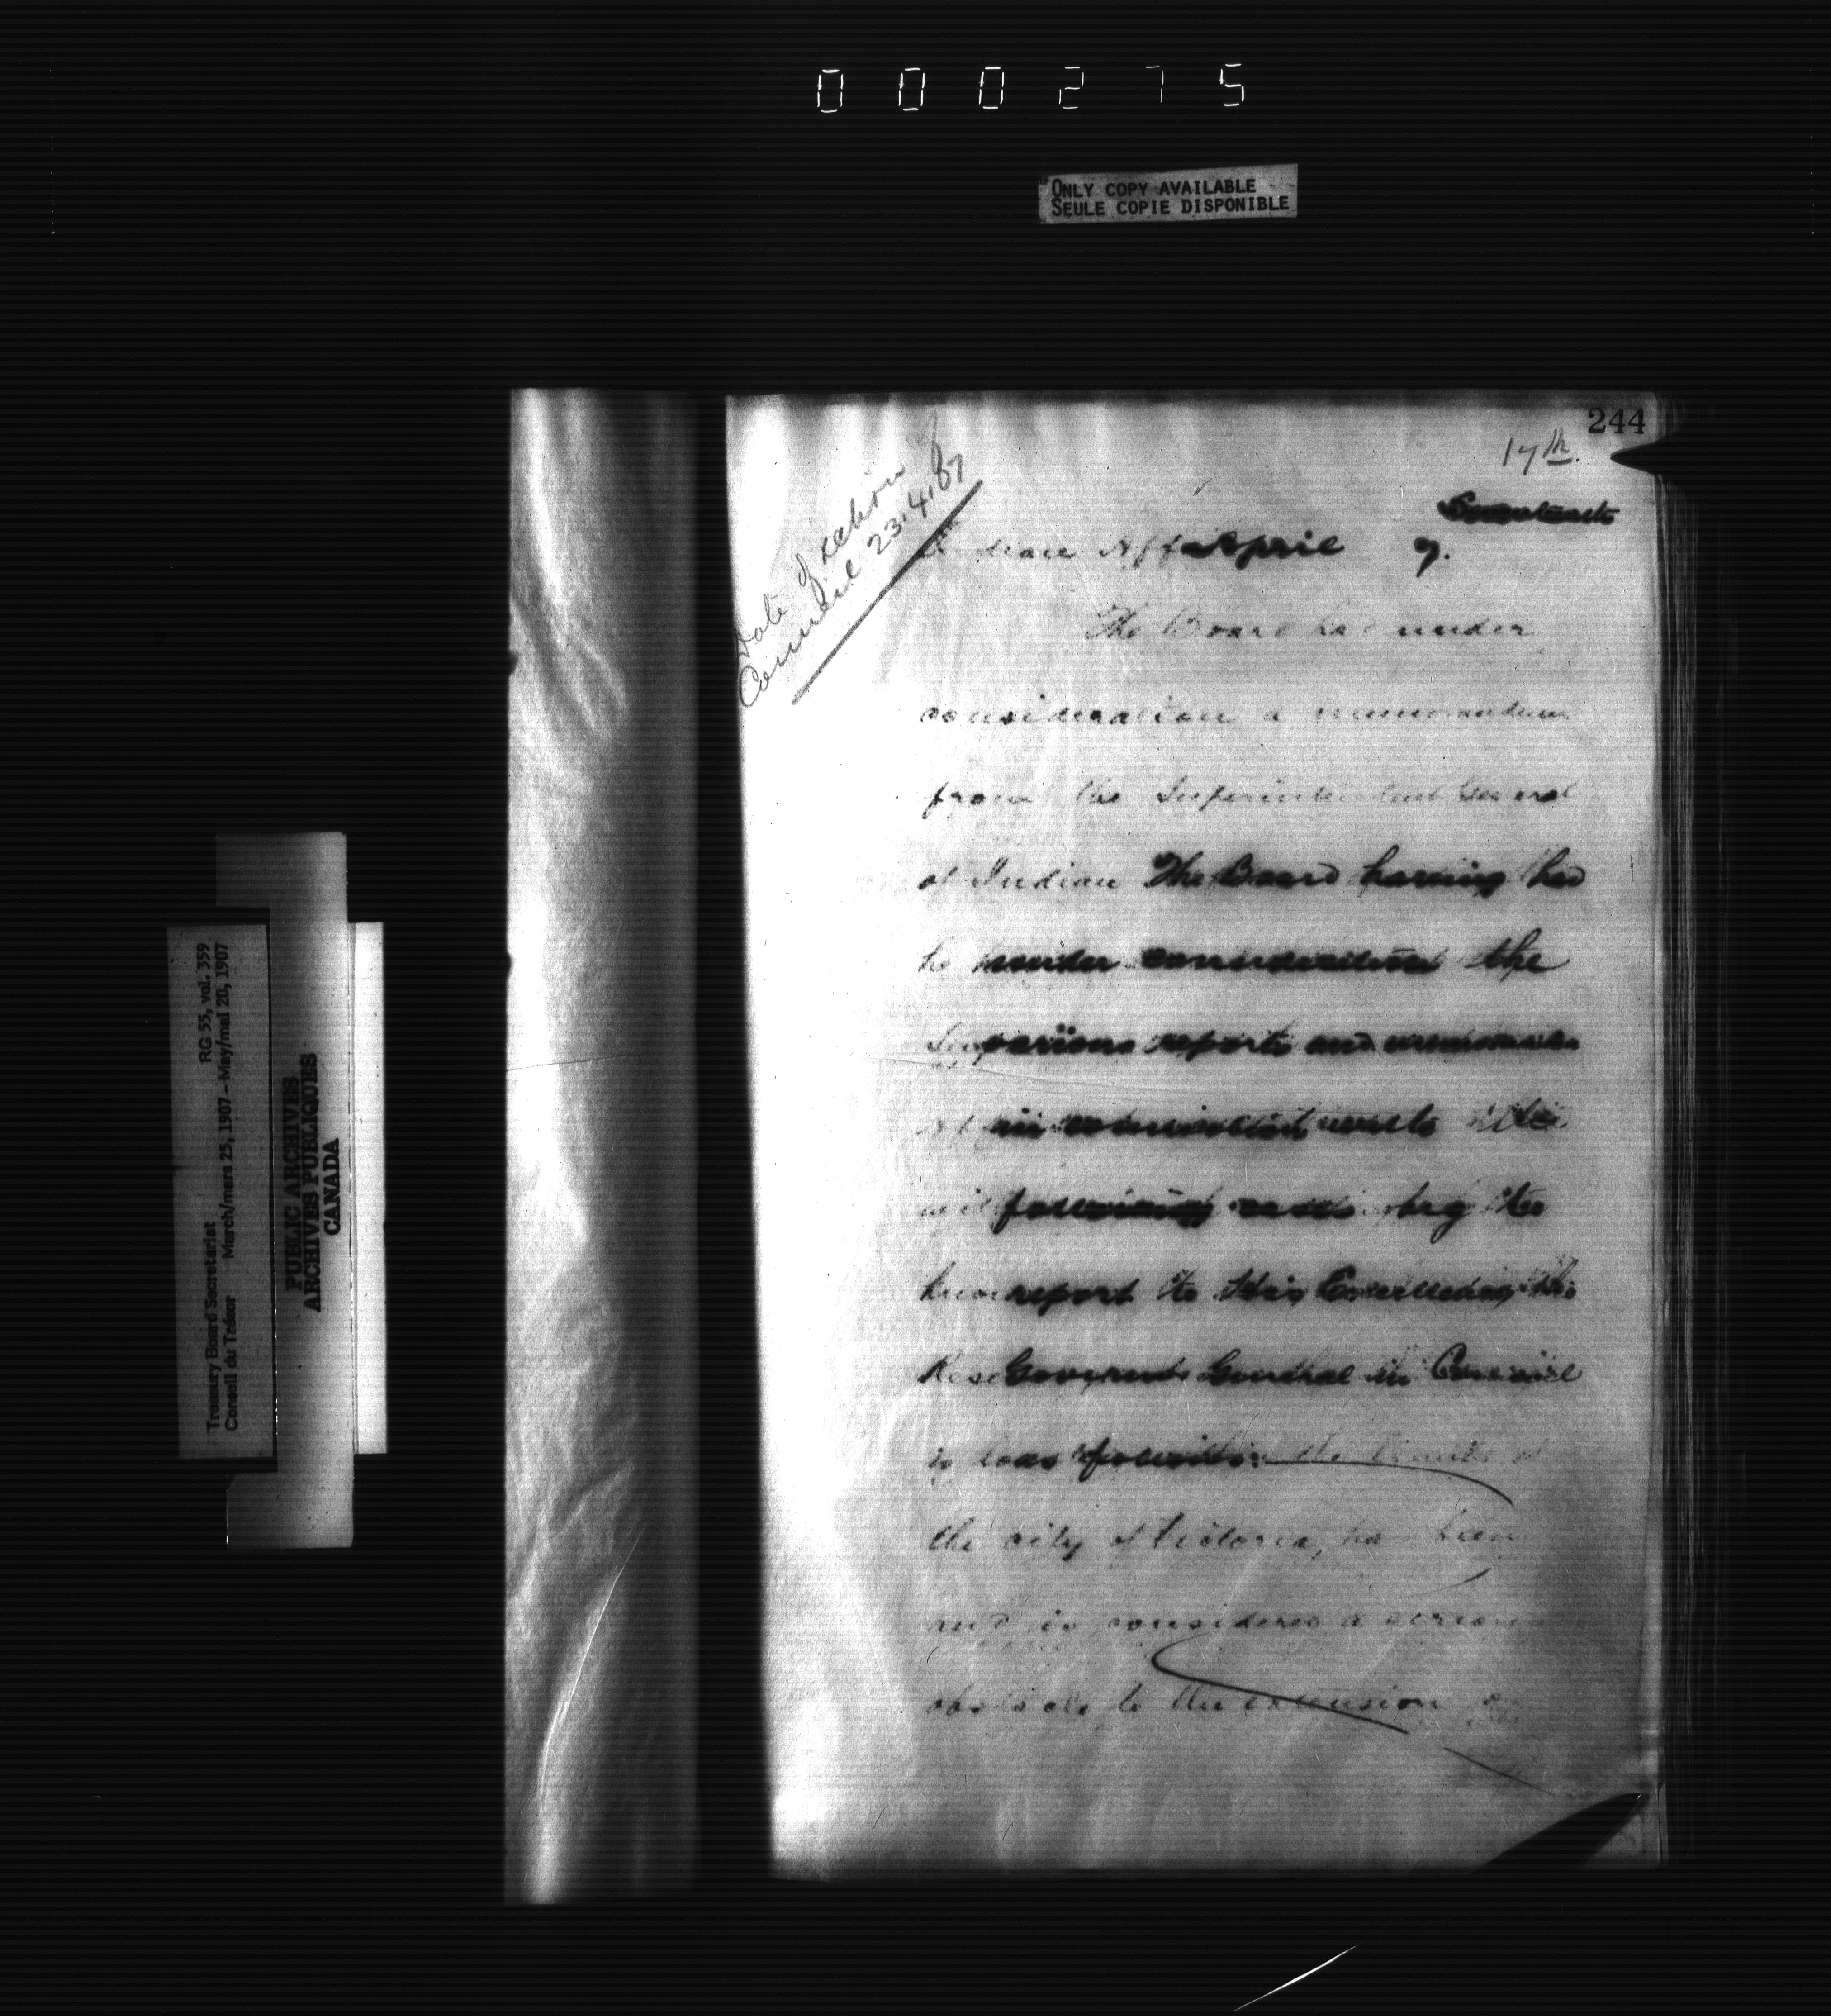 000275
ONLY COPY AVAILABLE
SEULE COPIE DISPONIBLE
244
17th.
Date of action of
Council 23.4.07
Indian Aff April 7.
The Board had under
consideration a memorandum
from the Superintendent General
of Indian The Board having had
under consideration the
various reports and memoranda
in connection with the
following cases beg to
report to His Excellency the
Governor General in Council
as follows: the limits of
the city of Victoria, has been
and is considered a serious
obstacle to the extension
Treasury Board Secretariat RG 55, vol. 359
Conseil du Trésor March/mars 25, 1907 - May/mai 20, 1907
PUBLIC ARCHIVES
ARCHIVES PUBLIQUES
CANADA